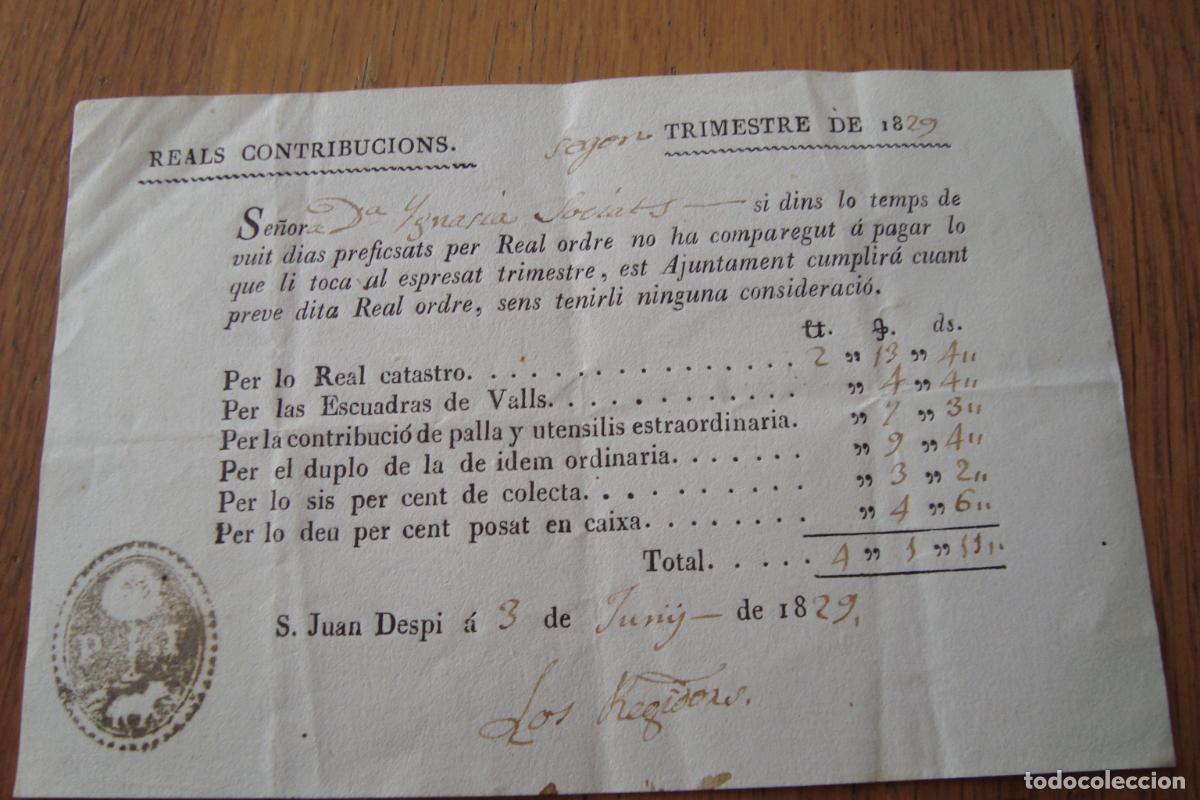 REALS CONTRIBUCIONS. segon TRIMESTRE DE 1829
Señora Dª Ygnasia Sociats — si dins lo temps de
vuit dias preficsats per Real ordre no ha comparegut á pagar lo
que li toca al espresat trimestre, est Ajuntament cumplirá cuant
preve dita Real ordre, sens tenirli ninguna consideració.
ds.
Per lo Real catastro. . . . . . . . . . . . . . . . 2 ,, 13 ,, 4,,
Per las Escuadras de Valls. . . . . . . . . . . . ,, 4 ,, 4,,
Per la contribució de palla y utensilis estraordinaria. ,, 7 ,, 3,,
Per el duplo de la de idem ordinaria. . . . . . . ,, 9 ,, 4,,
Per lo sis per cent de colecta. . . . . . . . . . ,, 3 ,, 2,,
Per lo deu per cent posat en caixa. . . . . . . . ,, 4 ,, 6,,
Total. . . . . 4 ,, 1 ,, 11,,
S. Juan Despi á 3 de Juny — de 1829.
Los Regidors.
todocoleccion